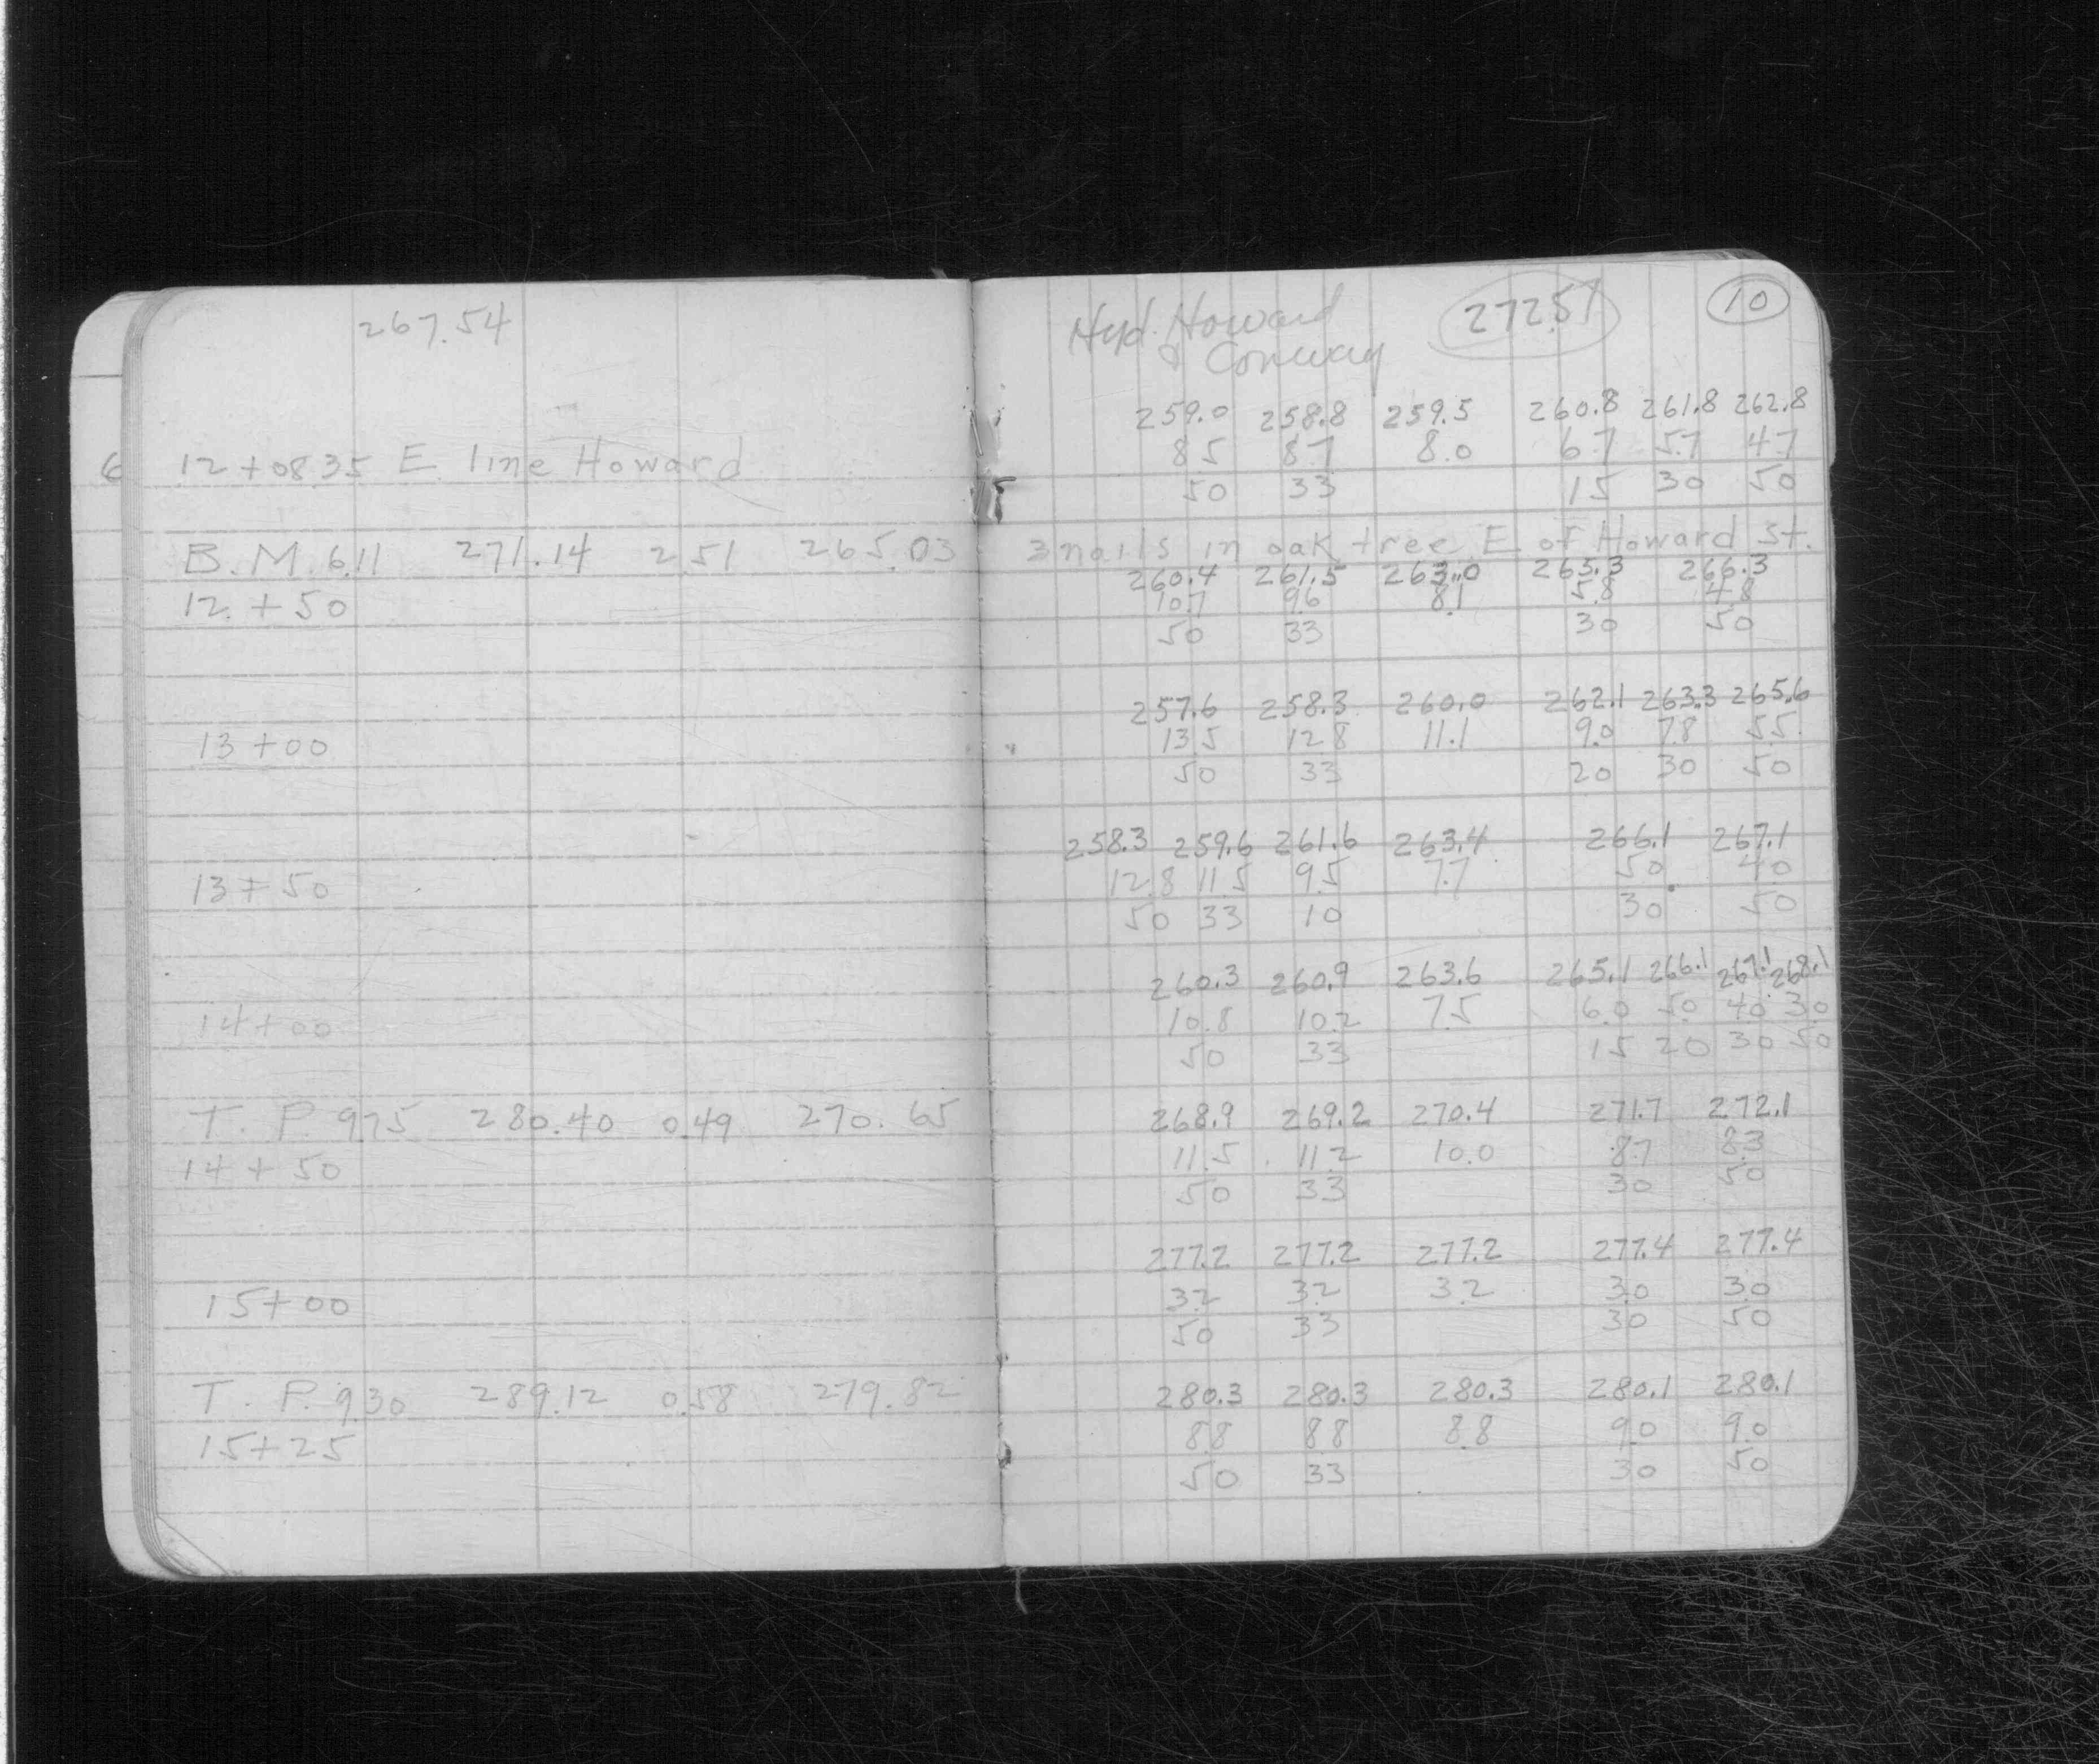 267.54
6 12+08.35 E line Howard
B.M. 6.11 271.14 2.51 265.03
12+50
13+00
13+50
14+00
T. P. 9.75 280.40 0.49 270.65
14+50
15+00
T. P. 9.30 289.12 0.58 279.82
15+25
Hyd. Howard 272.51 10
& Conway
259.0 258.8 259.5 260.8 261.8 262.8
8.5 8.7 8.0 6.7 5.7 4.7
50 33 15 30 50
3 nails in oak tree E of Howard St.
260.4 261.5 263.0 265.3 266.3
10.7 9.6 8.1 5.8 4.8
50 33 30 50
257.6 258.3 260.0 262.1 263.3 265.6
13.5 12.8 11.1 9.0 7.8 5.5
50 33 20 30 50
258.3 259.6 261.6 263.4 266.1 267.1
12.8 11.5 9.5 7.7 5.0 4.0
50 33 10 30 50
260.3 260.9 263.6 265.1 266.1 267.1 268.1
10.8 10.2 7.5 6.0 5.0 4.0 3.0
50 33 15 20 30 50
268.9 269.2 270.4 271.7 272.1
11.5 11.2 10.0 8.7 8.3
50 33 30 50
277.2 277.2 277.2 277.4 277.4
3.2 3.2 3.2 3.0 3.0
50 33 30 50
280.3 280.3 280.3 280.1 280.1
8.8 8.8 8.8 9.0 9.0
50 33 30 50